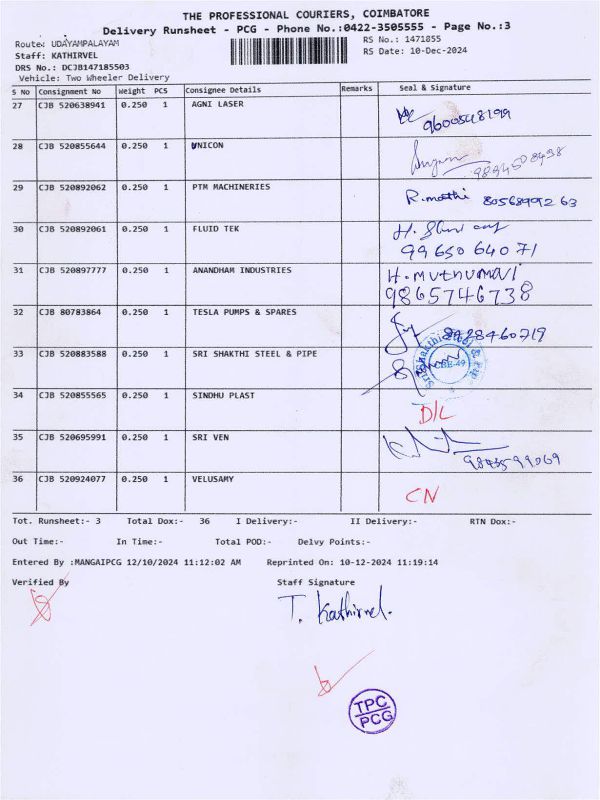 THE PROFESSIONAL COURIERS, COIMBATORE
Delivery Runsheet - PCG - Phone No.:0422-3505555 - Page No.:3
Route: UDAYAMPALAYAM RS No.: 1471855
Staff: KATHIRVEL RS Date: 10-Dec-2024
DRS No.: DCJB147185503
Vehicle: Two Wheeler Delivery
S No Consignment No Weight PCS Consignee Details Remarks Seal & Signature
27 CJB 520638941 0.250 1 AGNI LASER
9600548199
28 CJB 520855644 0.250 1 UNICON
9894508498
29 CJB 520892062 0.250 1 PTM MACHINERIES
R.mathi 8056899263
30 CJB 520892061 0.250 1 FLUID TEK H.
9965064071
31 CJB 520897777 0.250 1 ANANDHAM INDUSTRIES H. muthumari
9865746738
32 CJB 80783864 0.250 1 TESLA PUMPS & SPARES
8428460719
33 CJB 520883588 0.250 1 SRI SHAKTHI STEEL & PIPE
Sri Shakthi Steel & Pipe
CBE-49
34 CJB 520855565 0.250 1 SINDHU PLAST
D/L
35 CJB 520695991 0.250 1 SRI VEN
36 CJB 520924077 0.250 1 VELUSAMY
CN
Tot. Runsheet:- 3 Total Dox:- 36 I Delivery:- II Delivery:- RTN Dox:-
Out Time:- In Time:- Total POD:- Delvy Points:-
Entered By :MANGAIPCG 12/10/2024 11:12:02 AM Reprinted On: 10-12-2024 11:19:14
Verified By Staff Signature
T. Kathirvel.
TPC
PCG